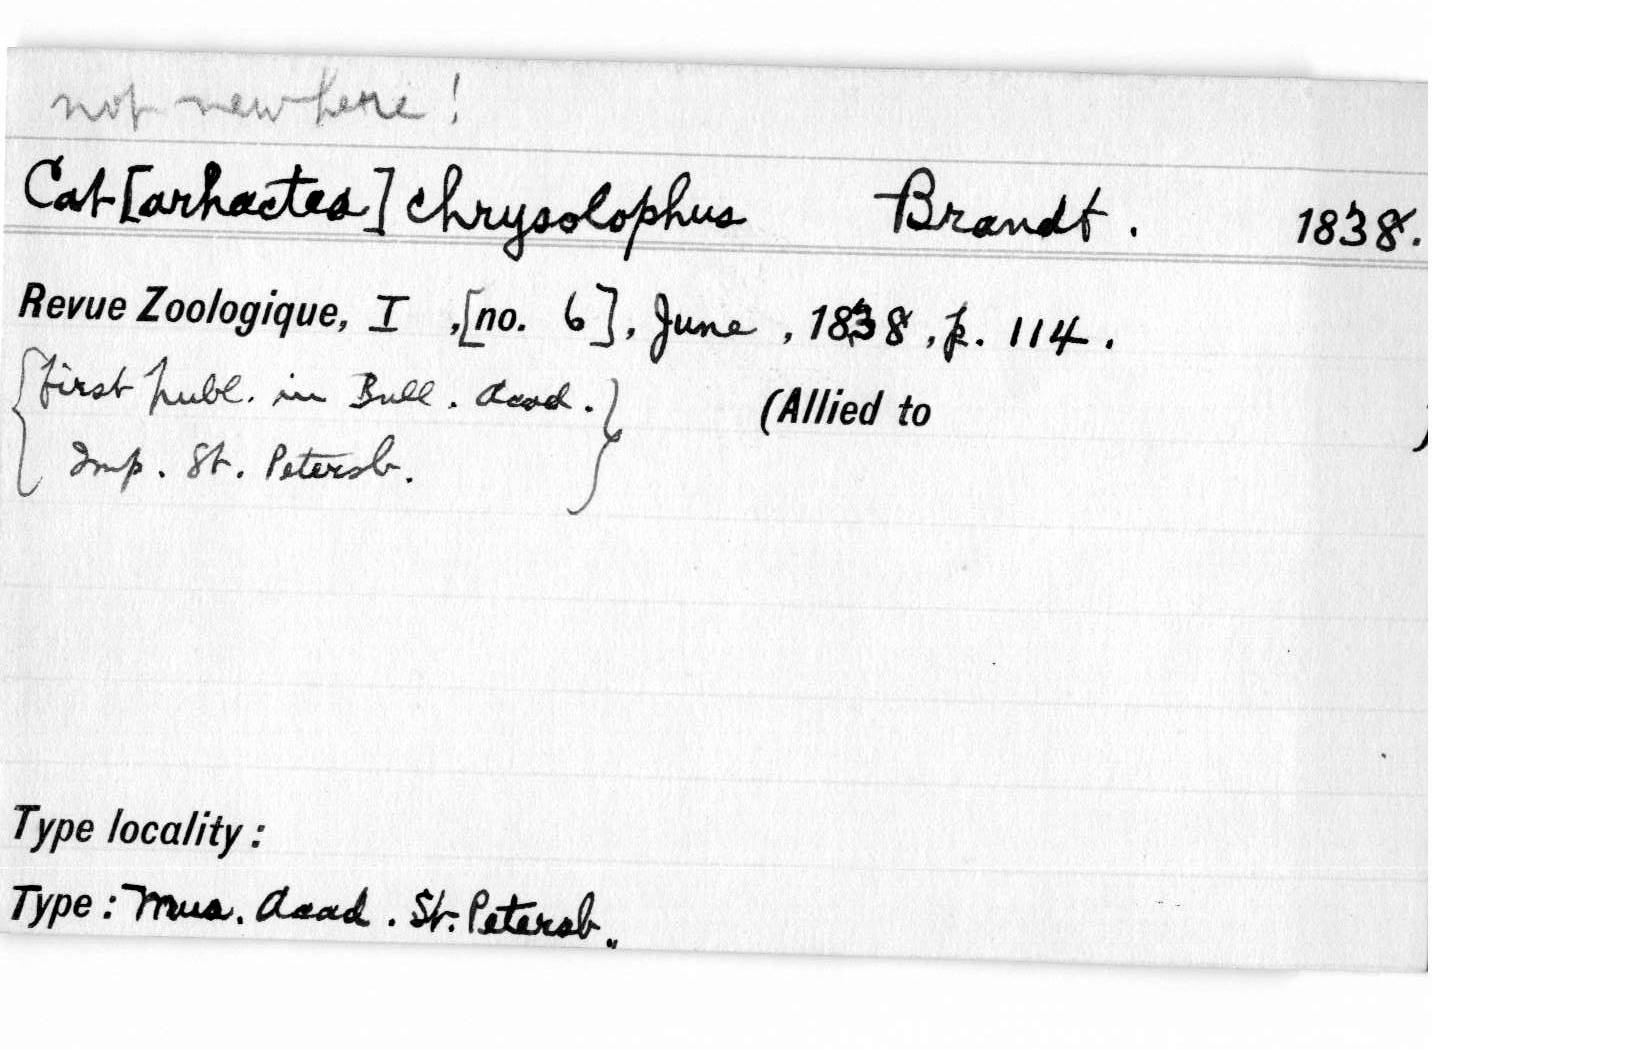 not new here!
Cat[arhactes] chrysolophus Brandt. 1838.
Revue Zoologique, I ,[no. 6], June , 1838, p. 114.
{first publ. in Bull. Acad.} (Allied to )
Imp. St. Petersb.
Type locality:
Type: Mus. Acad. St. Petersb.